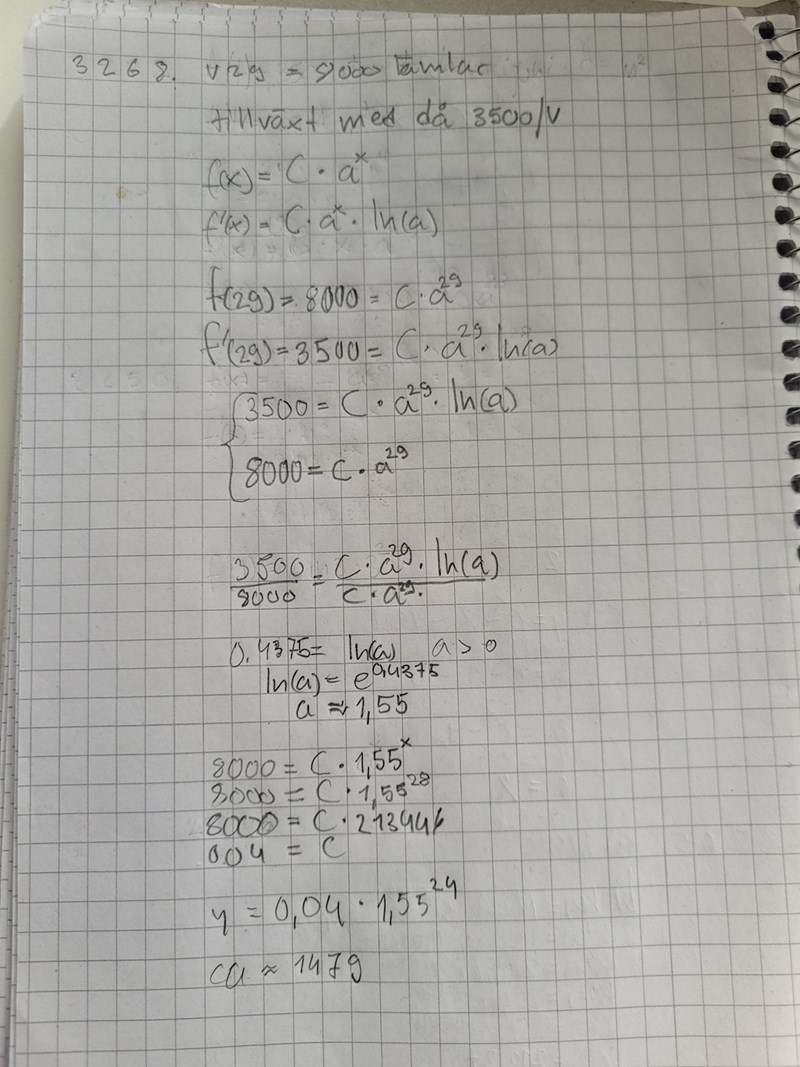 3268. v 29 = 8000
tillväxt med då 3500/v
f(x) = C · a^x
f'(x) = C · a^x · ln(a)
f(29) = 8000 = C · a^29
f'(29) = 3500 = C · a^29 · ln(a)
3500 = C · a^29 · ln(a)
8000 = C · a^29
3500/8000 = C · a^29 · ln(a) / C · a^29 ·
0.4375 = ln(a) a > 0
ln(a) = e^0,4375
a ≈ 1,55
8000 = C · 1,55^x
8000 = C · 1,55^28
8000 = C · 213446
004 = C
y = 0,04 · 1,55^24
ca ≈ 1479